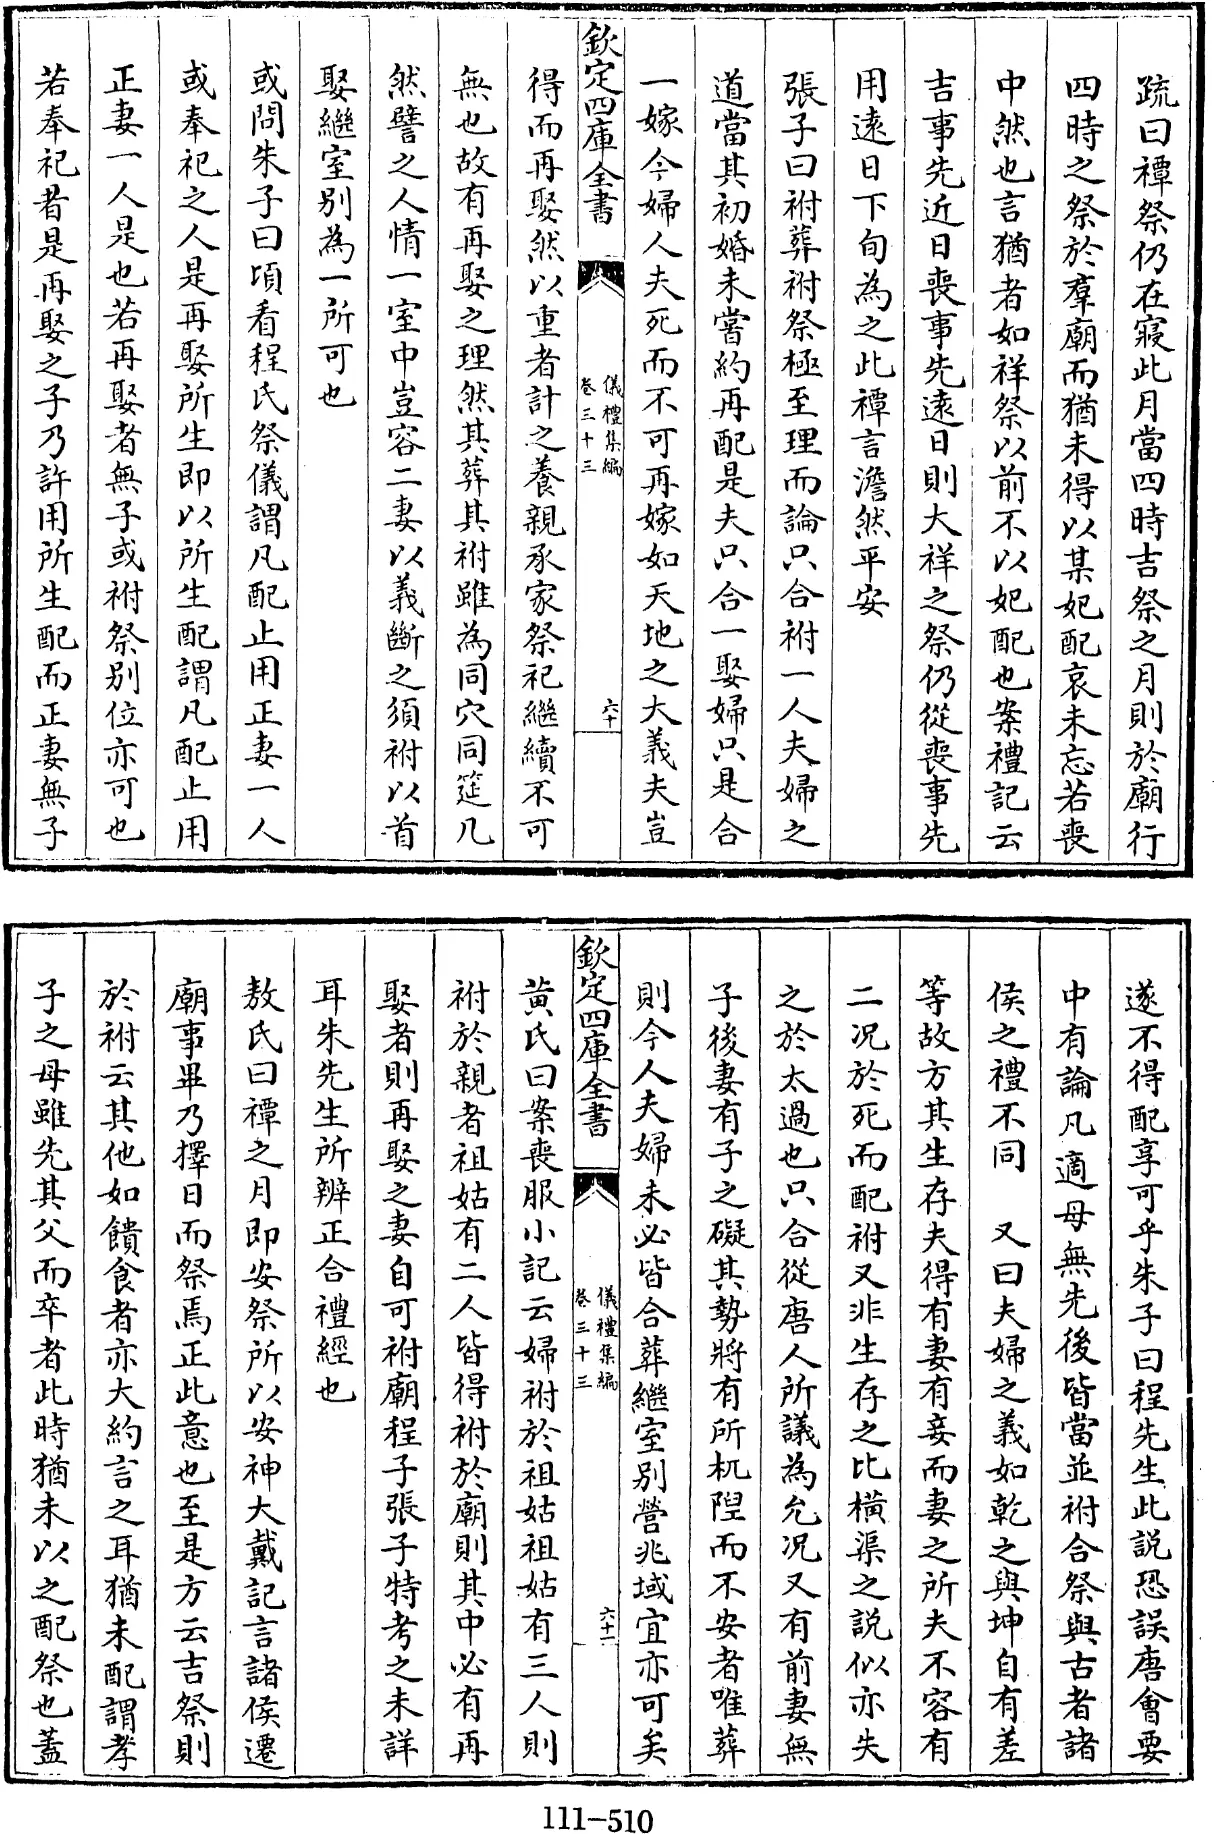 疏曰禫祭仍在寢此月當四時吉祭之月則於廟行
四時之祭於羣廟而猶未得以某妃配哀未忘若喪
中然也言猶者如祥祭以前不以妃配也案禮記云
吉事先近日喪事先遠日則大祥之祭仍從喪事先
用遠日下旬為之此禫言澹然平安
張子曰祔葬祔祭極至理而論只合祔一人夫婦之
道當其初婚未嘗約再配是夫只合一娶婦只是合
一嫁今婦人夫死而不可再嫁如天地之大義夫豈
欽定四庫全書
儀禮集編
卷三十三
六十
得而再娶然以重者計之養親承家祭祀繼續不可
無也故有再娶之理然其葬其祔雖為同穴同筵几
然譬之人情一室中豈容二妻以義斷之須祔以首
娶繼室別為一所可也
或問朱子曰頃看程氏祭儀謂凡配止用正妻一人
或奉祀之人是再娶所生即以所生配謂凡配止用
正妻一人是也若再娶者無子或祔祭別位亦可也
若奉祀者是再娶之子乃許用所生配而正妻無子
遂不得配享可乎朱子曰程先生此說恐誤唐會要
中有論凡適母無先後皆當並祔合祭與古者諸
侯之禮不同　又曰夫婦之義如乾之與坤自有差
等故方其生存夫得有妻有妾而妻之所夫不容有
二况於死而配祔又非生存之比橫渠之說似亦失
之於太過也只合從唐人所議為允况又有前妻無
子後妻有子之礙其勢將有所杌隉而不安者唯葬
則今人夫婦未必皆合葬繼室別營兆域宜亦可矣
欽定四庫全書
儀禮集編
卷三十三
六十一
黃氏曰案喪服小記云婦祔於祖姑祖姑有三人則
祔於親者祖姑有二人皆得祔於廟則其中必有再
娶者則再娶之妻自可祔廟程子張子特考之未詳
耳朱先生所辨正合禮經也
敖氏曰禫之月即安祭所以安神大戴記言諸侯遷
廟事畢乃擇日而祭焉正此意也至是方云吉祭則
於祔云其他如饋食者亦大約言之耳猶未配謂孝
子之母雖先其父而卒者此時猶未以之配祭也蓋
111-510